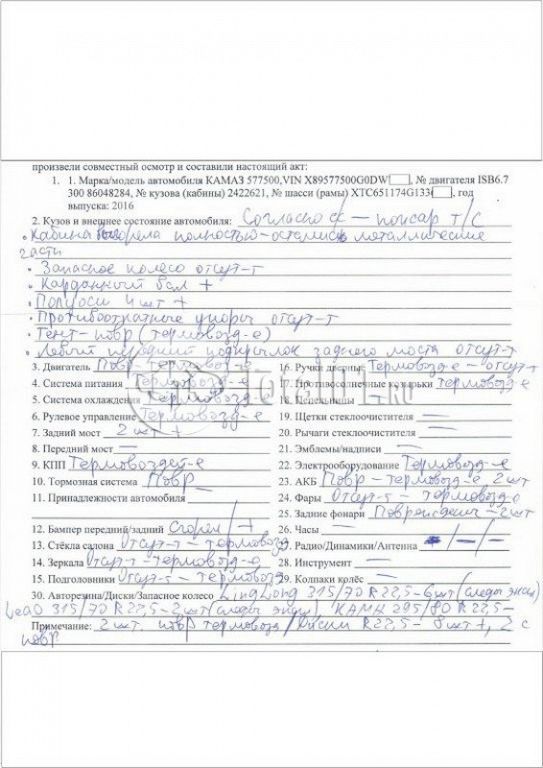 произвели совместный осмотр и составили настоящий акт:
1. 1. Марка/модель автомобиля КАМАЗ 577500,VIN X89577500G0DW , № двигателя ISB6.7
300 86048284, № кузова (кабины) 2422621, № шасси (рамы) XTC651174G133 , год
выпуска: 2016
2. Кузов и внешнее состояние автомобиля: Согласно – пожар т/с
• Кабина сгорела полностью – остались металлические
части
• Запасное колесо отсут-т
• Карданный вал +
• Полуоси 4 шт +
• Противооткатные упоры отсут-т
• Тент – повр (термовозд-е)
• Левый передний подкрылок заднего моста отсут-т
3. Двигатель Повр термовозд-е 16. Ручки дверны Термовозд-е – отсут-т
4. Система питания Термовозд-е 17. Противосолнечные козырьки термовозд-е
5. Система охлаждения Термовозд-е 18. Пепельницы —
6. Рулевое управление Термовозд-е 19. Щетки стеклоочистителя —
7. Задний мост 2 шт + 20. Рычаги стеклоочистителя —
8. Передний мост — 21. Эмблемы/надписи —
9. КПП Термовозд-е 22. Электрооборудование Термовозд-е
10. Тормозная система Повр 23. АКБ Повр – термовозд-е, 2 шт
11. Принадлежности автомобиля — 24. Фары Отсут-т – термовозд-е
25. Задние фонари Повреждены – 2 шт
12. Бампер передний/задний Сгорел / + 26. Часы —
13. Стёкла салона Отсут-т – термовозд 27. Радио/Динамики/Антенна – / – / –
14. Зеркала Отсут-т – термовозд-е 28. Инструмент —
15. Подголовники Отсут-т – термовозд 29. Колпаки колёс —
30. Авторезина/Диски/Запасное колесо LingLong 315/70 R22,5 – 6 шт (следы экспл)
315/70 R22,5 – 2 шт (следы экспл), КАМА 295/80 R22,5 –
Примечание: 2 шт. повр термовозд / Диски R22,5 – 8 шт +, 2 с
повр